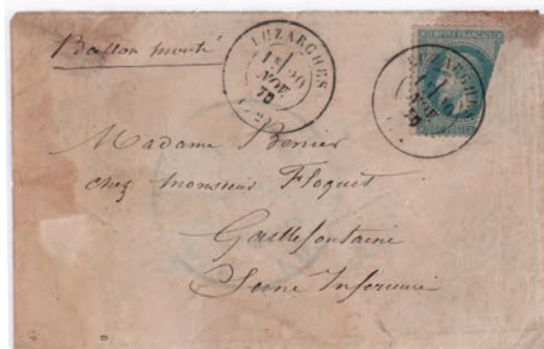 Ballon monté
LUZARCHES
20
NOV.
70
EMPIRE FRANÇAIS
LUZARCHES
NOV.
70
Madame Bernier
chez monsieur Floquet
Gaillefontaine
Seine Inferieure